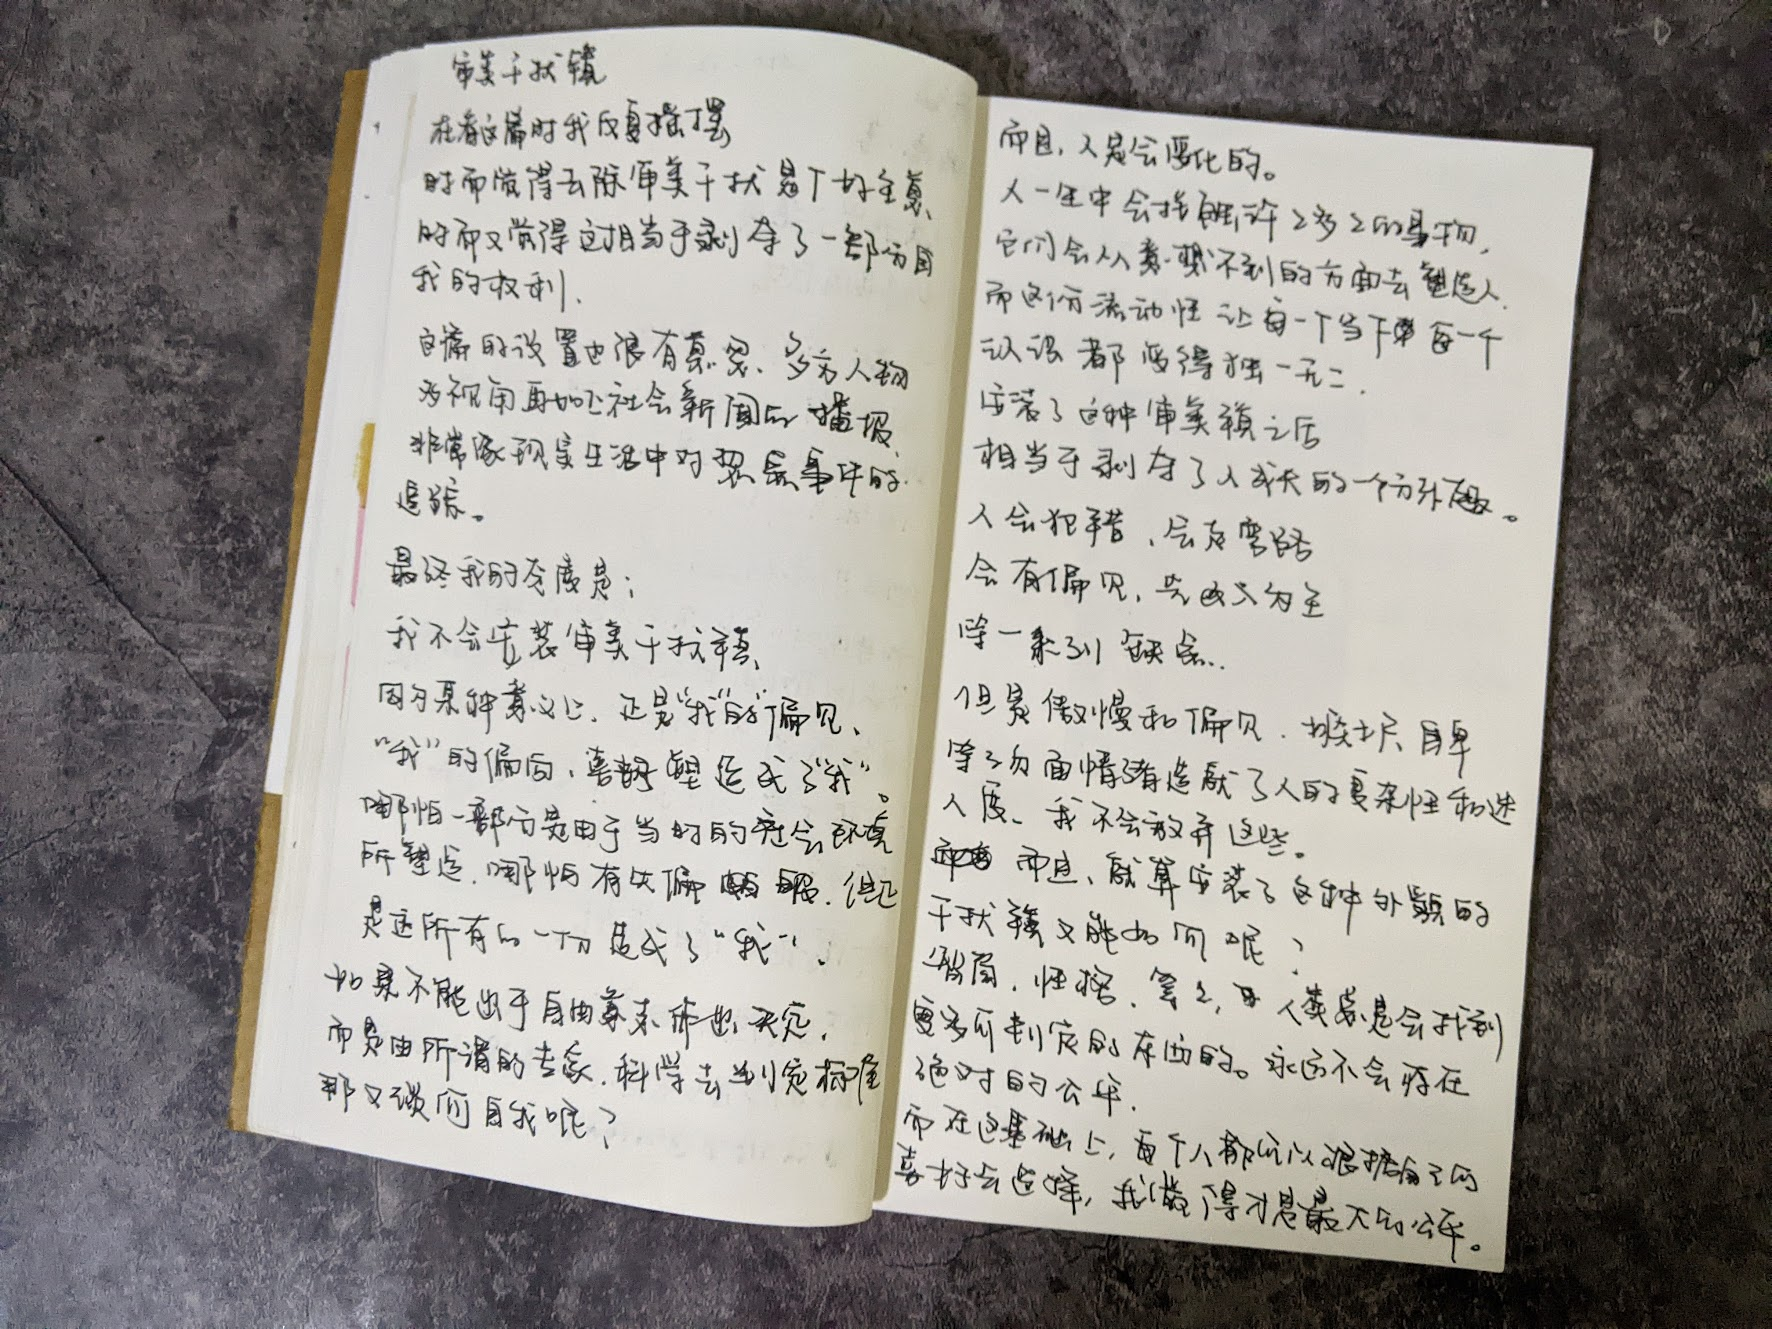 审美干扰镜
在看这篇时我反复摇摆
时而觉得去除审美干扰是个好主意、
时而又觉得这相当于剥夺了一部分自
我的权利.
这篇的设置也很有意思、多方人物
多视角再加上社会新闻的播报、
非常像现实生活中对热点事件的
追踪。
最终我的态度是:
我不会安装审美干扰镜、
因为某种意义上、正是“我”的“偏见、
“我”的偏向、喜好塑造成了“我”。
哪怕一部分是由于当时的社会环境
所塑造.哪怕有失偏颇.但正
是这所有的一切造成了“我”.
如果不能出于自由意来作出决定,
而是由所谓的专家.科学去判定标准
那又谈何自我呢?
而且,人是会变化的。
人一生中会接触许多多的事物,
它们会从意想不到的方面去塑造人.
而这份流动性让每一个当下每一个
认识都变得独一无二.
安装了这种审美镜之后
相当于剥夺了人成长的一个方外。
人会犯错、会走弯路
会有偏见、先入为主
等一系列缺点..
但是傲慢和偏见.嫉妒自卑
等负面情绪造就了人的复杂性和迷
人度、我不会放弃这些。
而且、就算安装了这种外貌的
干扰镜又能如何呢?
智商,性格,等等,人类总是会找到
更多可判定的东西的。永远不会存在
绝对的公平.
而在这基础上,每个人都可以根据自己的
喜好去选择,我觉得才是最大的公平。